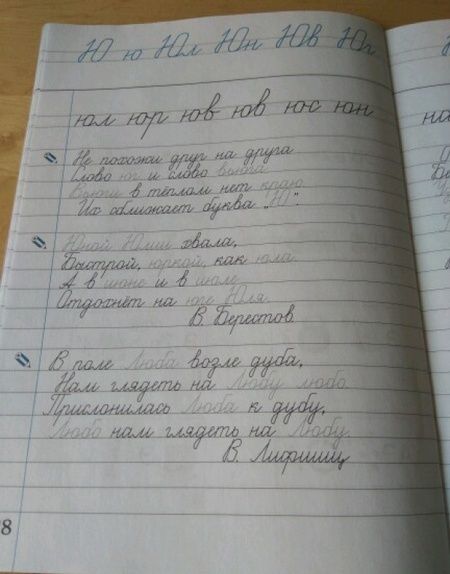 Ю ю Юл Юн Юв Юг
юл юр юв юв юс юн
Не похожи друг на друга
Слово юг и слово вьюга.
Вьюги в тёплом нет краю.
Их сближает буква „Ю".
Юной Юлии хвала,
Быстрой, юркой, как юла.
А в июне и в июле
Отдохнёт на юге Юля.
В. Берестов
В поле Люба возле дуба,
Нам глядеть на Любу любо.
Прислонилась Люба к дубу,
Любо нам глядеть на Любу.
В. Лифшиц
8